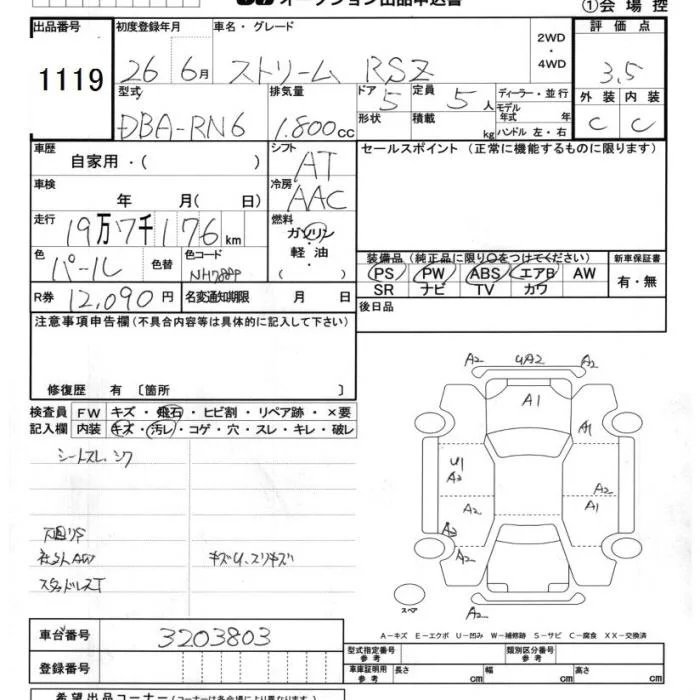 オークション出品申込書
①会場控
出品番号 初度登録年月 車名・グレード 2WD・4WD 評価点
1119 26 6月 ストリーム RSZ 3.5
型式 排気量 ドア 定員 ディーラー・並行 外装 内装
DBA-RN6 1.800cc 5 5人 モデル年式 年 C C
形状 積載 kg ハンドル 左・右
車歴 自家用・( ) シフト AT セールスポイント (正常に機能するものに限ります)
車検 年 月( 日) 冷房 AAC
走行 19万7千176km 燃料 ガソリン・軽油・( )
色 パール 色替 色コード NH788P
装備品 (純正品に限り○をつけてください) 新車保証書
PS PW ABS エアB AW 有・無
SR ナビ TV カワ
R券 12,090円 名変通知期限 月 日 後日品
注意事項申告欄(不具合内容等は具体的に記入して下さい)
修復歴 有 〔箇所 〕
検査員 FW キズ・飛石・ヒビ割・リペア跡・×要
記入欄 内装 キズ・汚レ・コゲ・穴・スレ・キレ・破レ
A2 UA2 A2
A1
A1
U1
A2
A2 A2
A1
A2
A2 A2
A2
スペア
下廻りS
社外AW キズU、スリキズ
スタッドレスT
A-キズ E-エクボ U-凹み W-補修跡 S-サビ C-腐食 XX-交換済
車台番号 3203803
登録番号
型式指定番号 参考 類別区分番号 参考
車庫証明用 参考 長さ cm 幅 cm 高さ cm
希望出品コーナー(コーナーは各会場により異なります)